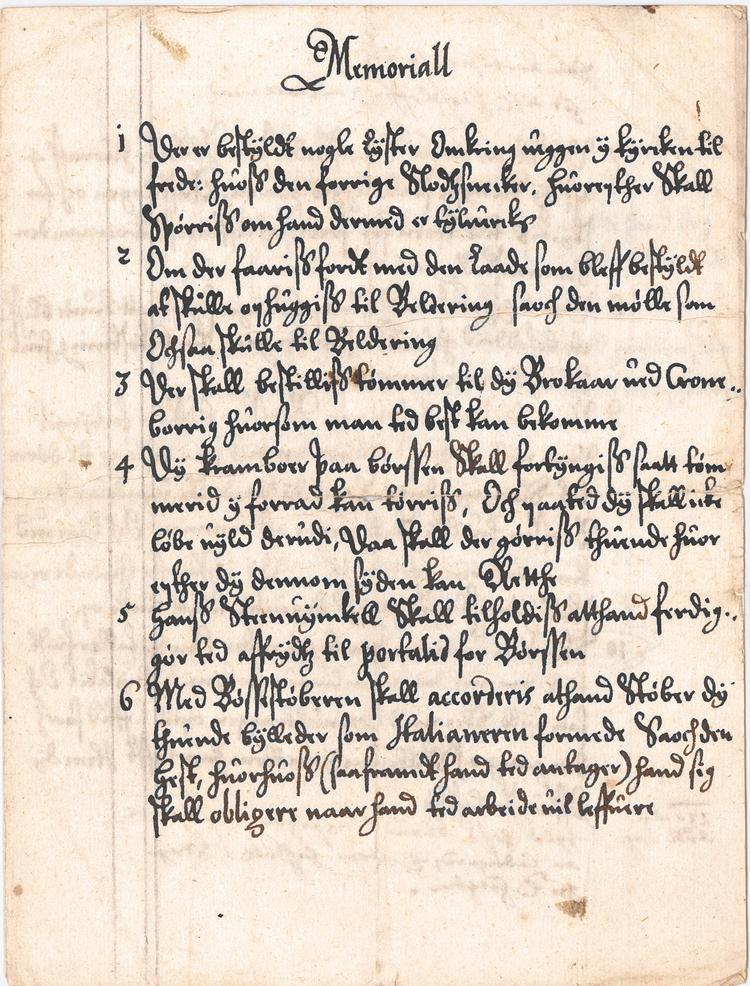 Memoriall
1 Der er bestyldt nogle Lyster Omkring ueggen y kyrcken til
frede: huoss den forrige Slodtzsnecker, huorepther Skall
Spørriss om hand dermed er tyluercks
2 Om der faariss fordt med den Laade som bleff bestyldt
at skulle ophuggiss til Beldering saoch den mølle som
Ochsaa skulle til Beldering
3 Der skall bestilliss tømmer til dy Brokaar ued Crone..
borrig huorsom man ted best kan bekomme
4 Dy kramboer paa børssen Skall fortyngiss saatt tøm
merid y forrad kan tørriss, Och paa ted dy skall icke
løbe uyld derudi, Daa skall der gørriss thuende huor
epther dy dennom syden kan Retthe
5 Hanss Steenuynkell Skall tilholdiss att hand ferdig..
gør ted affrydtz til portalid for Børssen
6 Med Bøssestøberen skall accorderis at hand Støber dy
thuende bylleder som Italianeren formede Saoch den
hest, huorhuoss (saa framdt hand ted antager) hand sig
skall obligere naar hand ted arbeide uil leffuere